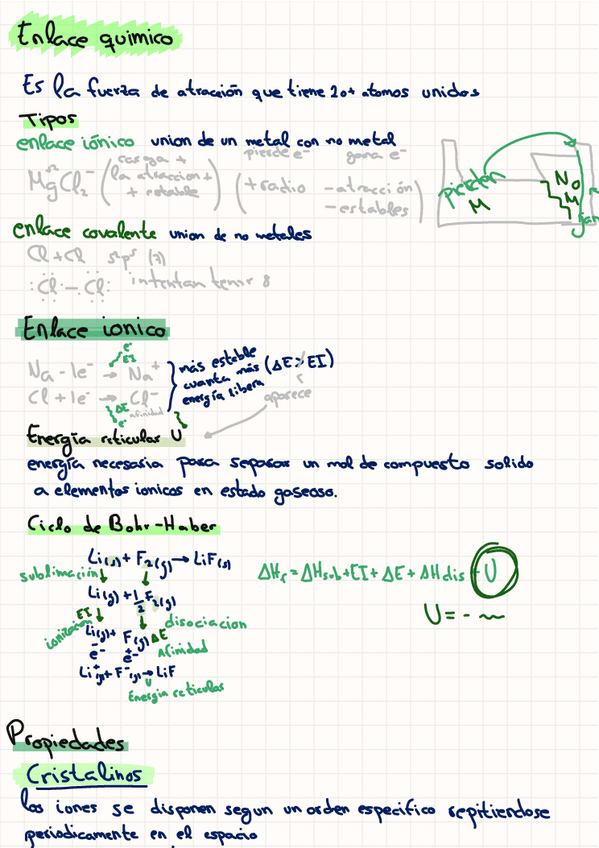 Enlace quimico
Es la fuerza de atracción que tiene 2o+ atomos unidos
Tipos
enlace iónico union de un metal con no metal
pierde e⁻ gana e⁻
MgCl₂ (carga + la atraccion + + estable) (+radio -atracción -estables)
pierden M
No M
enlace covalente union de no metales
Cl+Cl s²p⁵ (7)
:Cl-Cl: intentan tener 8
Enlace ionico
Na - 1e⁻ → Na⁺
e⁻ EI
Cl + 1e⁻ → Cl⁻
ΔE afinidad
e⁻
más estable (ΔE>EI)
cuanta más
energía libera
aparece
Energía reticular U
energía necesaria para separar un mol de compuesto solido
a elementos ionicos en estado gaseoso.
Ciclo de Bohr-Haber
Li(s) + F₂(g) → LiF(s)
sublimación
Li(g) + ½F₂(g)
EI disociacion
ionización
Li(g) + F(g) ΔE
e⁻ e⁻ Afinidad
Li⁺(g) + F⁻(g) → LiF
U
Energia reticular
ΔHf = ΔHsub + EI + ΔE + ΔHdis + U
U = -
Propiedades
Cristalinos
los iones se disponen segun un orden especifico repitiendose
periodicamente en el espacio